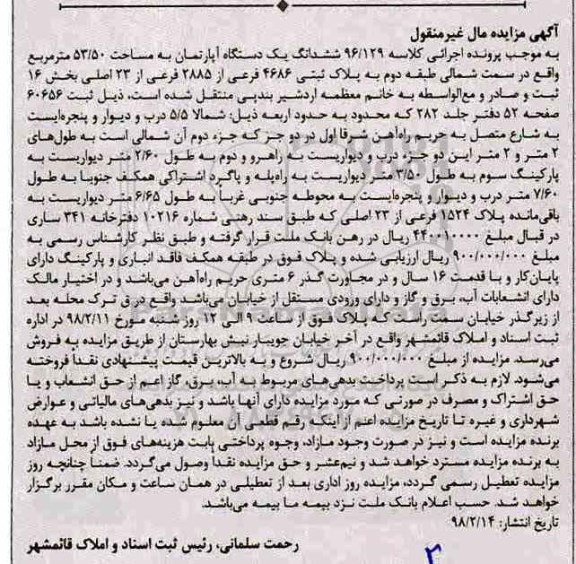 آگهی مزایده مال غیرمنقول
به موجب پرونده اجرائی کلاسه ۹۶/۱۲۹ ششدانگ یک دستگاه آپارتمان به مساحت ۵۳/۵۰ مترمربع
واقع در سمت شمالی طبقه دوم به پلاک ثبتی ۴۶۸۶ فرعی از ۲۸۸۵ فرعی از ۲۳ اصلی بخش ۱۶
ثبت و صادر و مع‌الواسطه به خانم معظمه اردشیر بندپی منتقل شده است، ذیل ثبت ۶۰۶۵۶
صفحه ۵۲ دفتر جلد ۲۸۲ که محدود به حدود اربعه ذیل: شمالا ۵/۵ درب و دیوار و پنجره‌ایست
به شارع متصل به حریم راه‌آهن شرقا اول در دو جز که جزء دوم آن شمالی است به طول‌های
۲ متر و ۲ متر این دو جزء درب و دیواریست به راهرو و دوم به طول ۲/۶۰ متر دیواریست به
پارکینگ سوم به طول ۳/۵۰ متر دیواریست به راه‌پله و پاگرد اشتراکی همکف جنوبا به طول
۷/۶۰ متر درب و دیوار و پنجره‌ایست به محوطه جنوبی غرباً به طول ۶/۶۵ متر دیواریست به
باقی‌مانده پلاک ۱۵۲۴ فرعی از ۲۳ اصلی که طبق سند رهنی شماره ۱۰۲۱۶ دفترخانه ۳۴۱ ساری
در قبال مبلغ ۴۴۰۰۱۰۰۰۰ ریال در رهن بانک ملت قرار گرفته و طبق نظر کارشناس رسمی به
مبلغ ۹۰۰/۰۰۰/۰۰۰ ریال ارزیابی شده و پلاک فوق در طبقه همکف فاقد انباری و پارکینگ دارای
پایان‌کار و با قدمت ۱۶ سال و در مجاورت گذر ۶ متری حریم راه‌آهن می‌باشد و در اختیار مالک
دارای انشعابات آب، برق و گاز و دارای ورودی مستقل از خیابان می‌باشد واقع در ق ترک محله بعد
از زیرگذر خیابان سمت راست که پلاک فوق از ساعت ۹ الی ۱۲ روز شنبه مورخ ۹۸/۲/۱۱ در اداره
ثبت اسناد و املاک قائمشهر واقع در آخر خیابان جویبار نبش بهارستان از طریق مزایده به فروش
می‌رسد. مزایده از مبلغ ۹۰۰/۰۰۰/۰۰۰ ریال شروع و به بالاترین قیمت پیشنهادی نقداً فروخته
می‌شود. لازم به ذکر است پرداخت بدهی‌های مربوط به آب، برق، گاز اعم از حق انشعاب و یا
حق اشتراک و مصرف در صورتی که مورد مزایده دارای آنها باشد و نیز بدهی‌های مالیاتی و عوارض
شهرداری و غیره تا تاریخ مزایده اعم از اینکه رقم قطعی آن معلوم شده یا نشده باشد به عهده
برنده مزایده است و نیز در صورت وجود مازاد، وجوه پرداختی بابت هزینه‌های فوق از محل مازاد
به برنده مزایده مسترد خواهد شد و نیم‌عشر و حق مزایده نقداً وصول می‌گردد. ضمناً چنانچه روز
مزایده تعطیل رسمی گردد، مزایده روز اداری بعد از تعطیلی در همان ساعت و مکان مقرر برگزار
خواهد شد. حسب اعلام بانک ملت نزد بیمه ما بیمه می‌باشد.
تاریخ انتشار: ۹۸/۲/۱۴
رحمت سلمانی، رئیس ثبت اسناد و املاک قائمشهر
۲